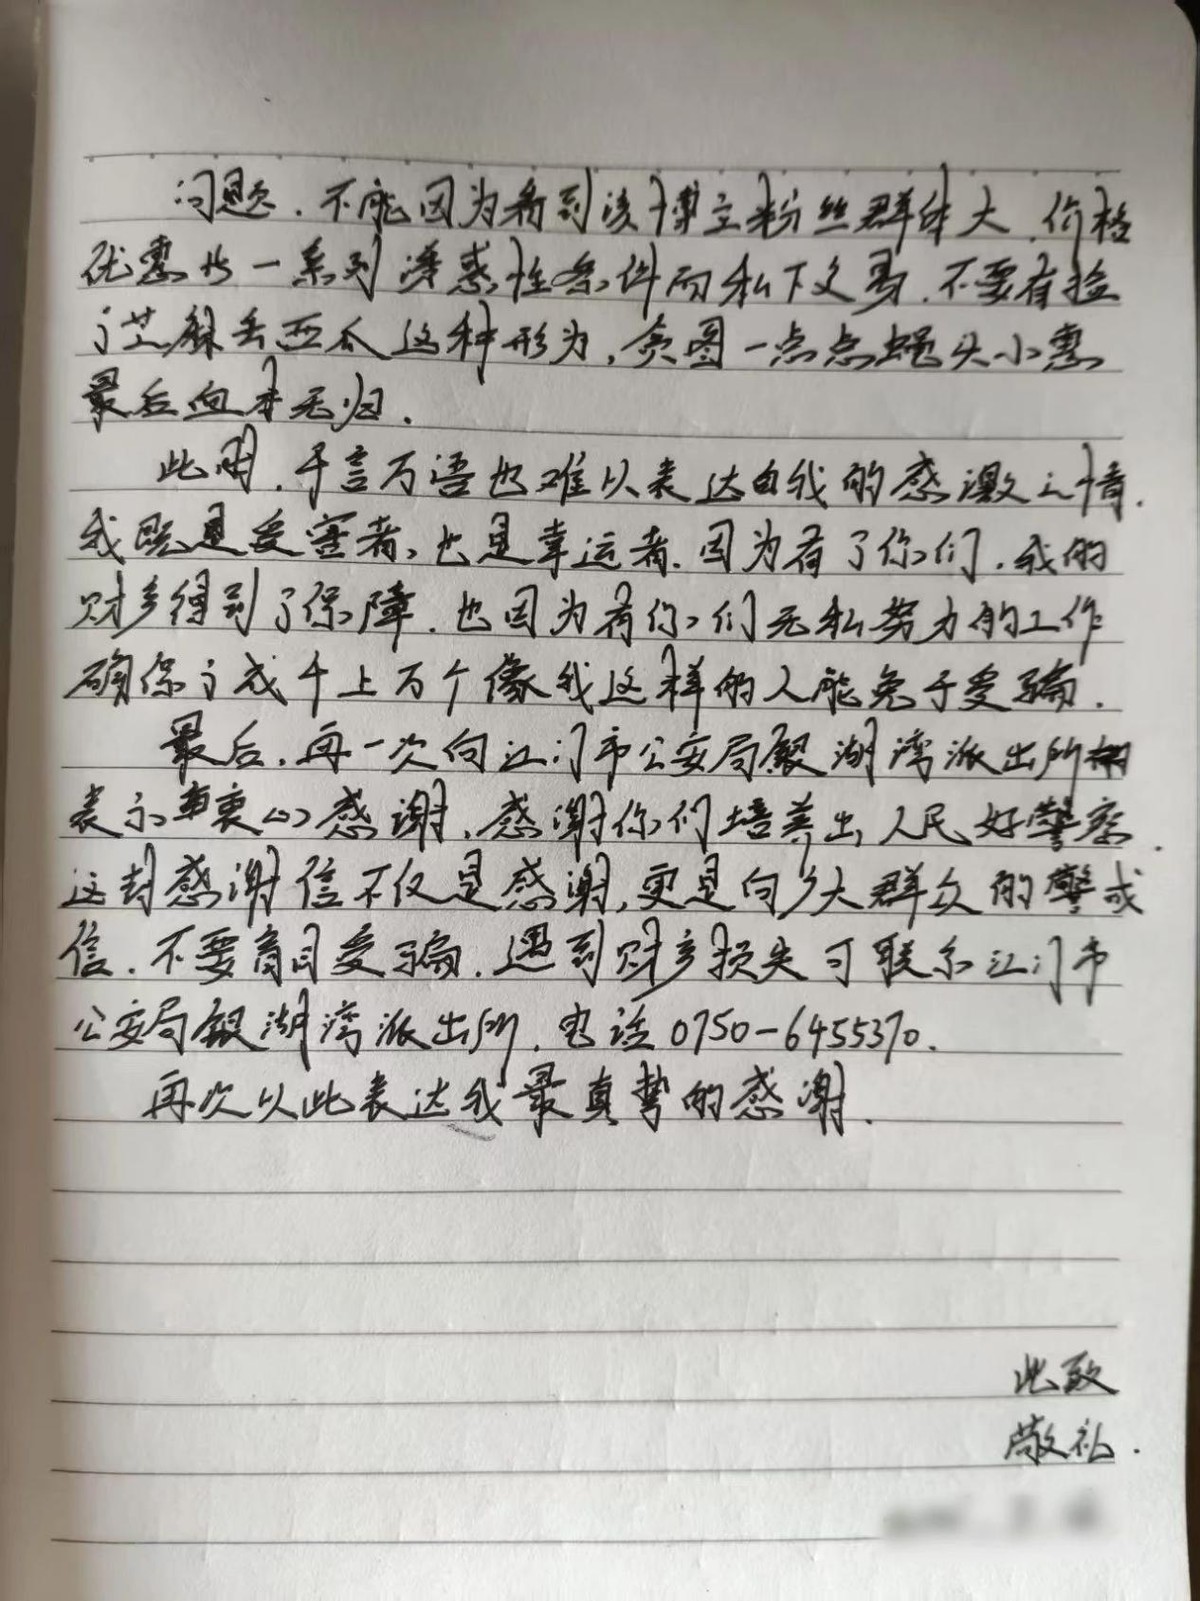 问题.不能因为看到该博主粉丝群体大.价格
优惠些一系列诱惑性条件而私下交易.不要有捡
了芝麻丢西瓜这种形为,贪图一点点蝇头小惠
最后血本无归.
此刻.千言万语也难以表达自我的感激之情.
我既是受害者,也是幸运者.因为有了你们.我的
财产得到了保障.也因为有你们无私努力的工作
确保了成千上万个像我这样的人能免于受骗.
最后.再一次向江门市公安局银湖湾派出所
表示衷心感谢.感谢你们培养出人民好警察.
这封感谢信不仅是感谢,更是向广大群众的警戒
信.不要盲目受骗.遇到财产损失可联系江门市
公安局银湖湾派出所.电话0750-6455370.
再次以此表达我最真挚的感谢.
此致
敬礼.